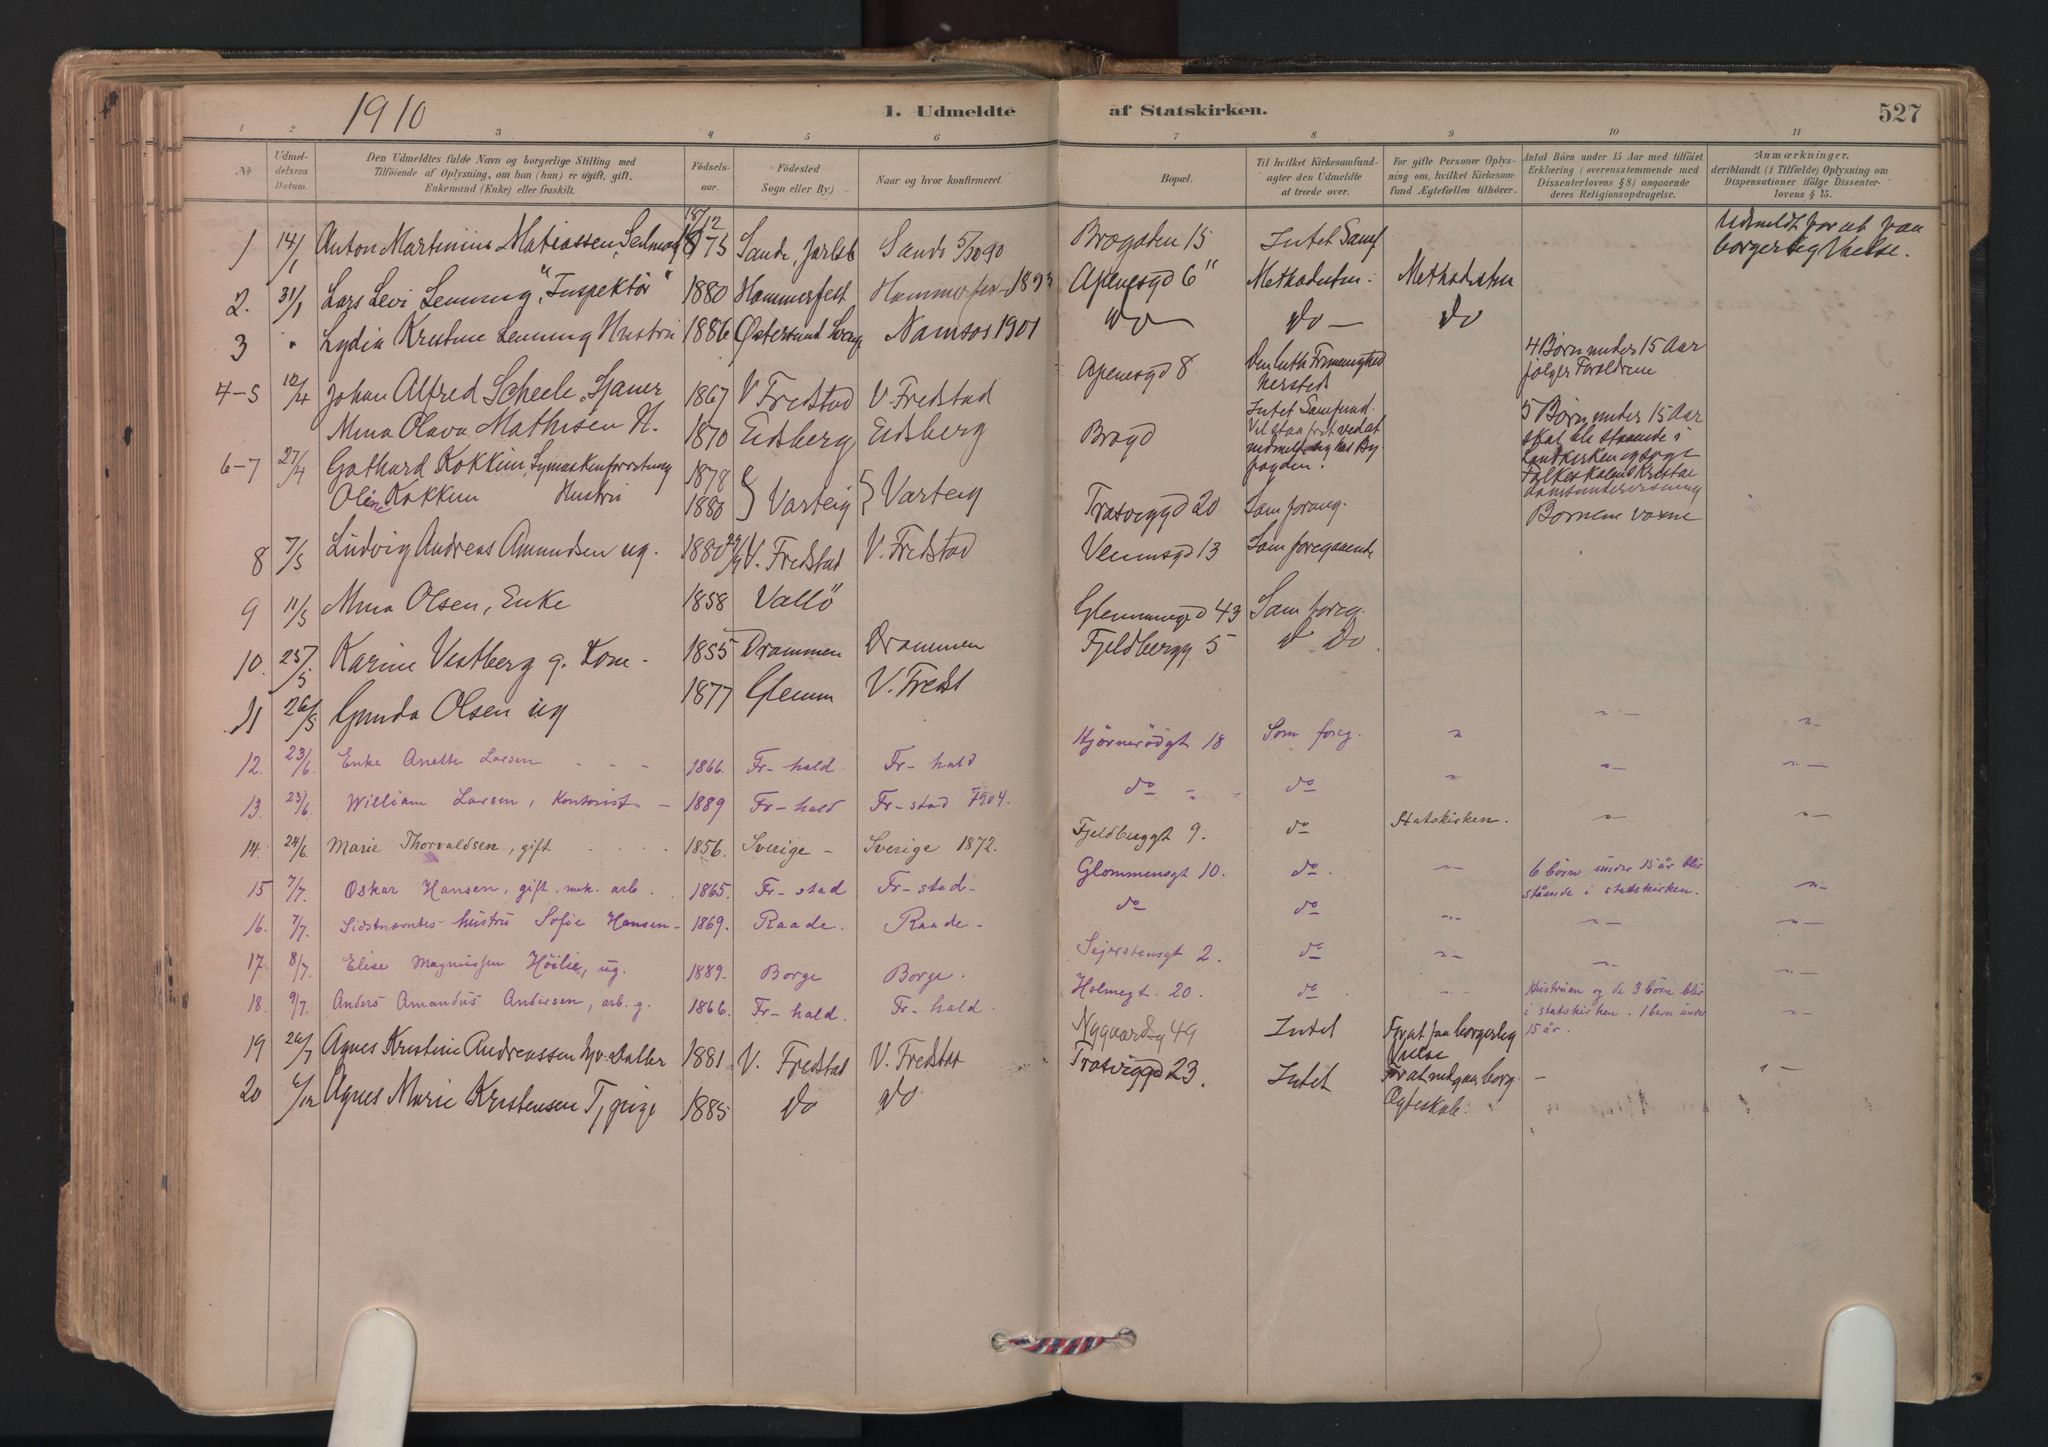 1910
1. Udmeldte af Statskirken.
527
1 2 3 4 5 6 7 8 9 10 11
№
Udmeldelsens Datum.
Den Udmeldtes fulde Navn og borgerlige Stilling med Tilføiende af Oplysning, om han (hun) er ugift, gift, Enkemand (Enke) eller fraskilt.
Fødselsaar.
Fødested Sogn eller By.)
Naar og hvor konfirmeret.
Bopæl.
Til hvilket Kirkesamfund agter den Udmeldte at træde over.
For gifte Personer Oplysning om, hvilket Kirkesamfund Ægtefællen tilhører.
Antal Børn under 15 Aar med tilføiet Erklæring (overensstemmende med Dissenterlovens § 8) angaaende deres Religionsopdragelse.
Anmærkninger, deriblandt (i Tilfælde) Oplysning om Dispensationer ifølge Dissenterlovens § 15.
1 14/1 Anton Martinius Matiassen, Sømand 18/12 1875 Sande, Jarlsb Sande 5/10 90 Brogaden 15 Intet Samf Udmeldt for at faa borgerlig Vielse.
2. 31/1 Lars Levi Lemming, "Inspektör" 1880 Hammerfest Hammerfest 1893 Apenesgd 6" Methodisten Methodisten
3 " Lydia Kristine Lemming Hustru 1886 Østersund Sverig Namsos 1901 do — do — do
4-5 12/4 Johan Alfred Scheele, 1867 V Fredstad V. Fredstad Apenesgd 8 Den luth Frimenighed 4 Børn under 15 Aar følger Forældrene
Mina Olava Mathisen H. 1870 Eidsberg Eidsberg
6-7 27/4 Gothard Kokkim, 1878 } Varteig } Varteig Brogd Intet Samfund. 5 Børn under 15 Aar skal bli staaende i
Oline Kokkim Hustru 1880 Trosviggd 20 Som foreg. Børnene voxne
8 7/5 Ludvig Andreas Amundsen ug. 1880 29/9 V. Fredstad V. Fredstad Vennsgd 13 Som foregaaende
9 11/5 Mina Olsen, Enke 1858 Vallö Glemmengd 43 Som foreg.
10. 25/5 Karine Vestberg g. Kone 1855 Drammen Drammen Fjeldbergg 5 do do
11 26/5 Gunda Olsen ug 1877 Glemm V. Fredst
12. 23/6. Enke Anette Larsen - - - 1866. Fr-hald. Fr-hald Hjørnerödgt 18 Som foreg. " " — " —
13. 23/6. William Larsen, Kontorist - 1889 Fr-hald Fr-stad 1904. do - " do " " — " —
14. 24/6. Marie Thorvaldsen, gift 1856. Sverige - Sverige 1872. Fjeldberggt 9. do Statskirken. " — " —
15 7/7. Oskar Hansen, gift. mek. arb. 1865. Fr-stad Fr-stad- Glommensgt 10. do. " — 6 børn under 15 år blir stående i statskirken. " —
16. 7/7. Sidstnævntes hustru Sofie Hansen - 1869. Raade. Raade- do do " — " — " —
17. 8/7. Elise Magnussen Höilie, ug. 1889. Borge Borge. Sejerstensgt 2. do " — " — " —
18. 9/7. Anders Amandus Andersen, arb. g. 1866. Fr-hald. Fr-hald. Holmegt. 20. do Hustruen og de 3 børn blir i statskirken. 1 barn under 15 år. " —
19 26/7 Agnes Kristine Andreassen 1881 V. Fredstad V. Fredstad Nygaardsg 49 Intet For at faa borgerlig Vielse
20 Agnes Marie Kristensen Tj pige 1885 do do Trosviggd 23. Intet For at indgaa borg. Ægteskab. — " —